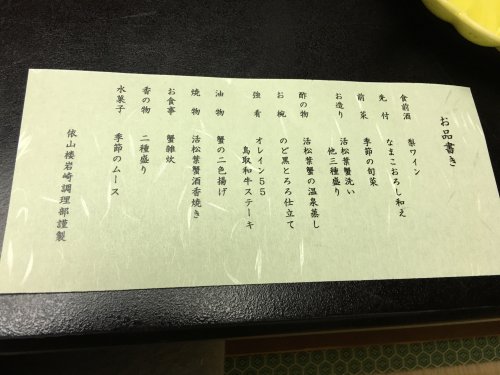 お品書き
食前酒 梨ワイン
先付 なまこおろし和え
前菜 季節の旬菜
お造り 活松葉蟹洗い
他三種盛り
酢の物 活松葉蟹の温泉蒸し
お椀 のど黒とろろ仕立て
強肴 オレイン55
鳥取和牛ステーキ
油物 蟹の二色揚げ
焼物 活松葉蟹酒香焼き
お食事 蟹雑炊
香の物 二種盛り
水菓子 季節のムース
依山楼岩崎調理部謹製